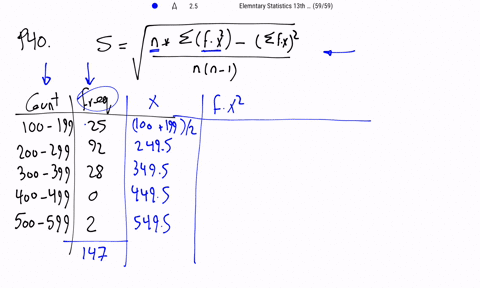 2.5 Elemntary Statistics 13th ... (59/59)
P40. S = √(n * Σ(f.x²) - (Σf.x)² / n(n-1)) ←
Count freq X f.x²
100-199 25 (100+199)/2
200-299 92 249.5
300-399 28 349.5
400-499 0 449.5
500-599 2 549.5
147